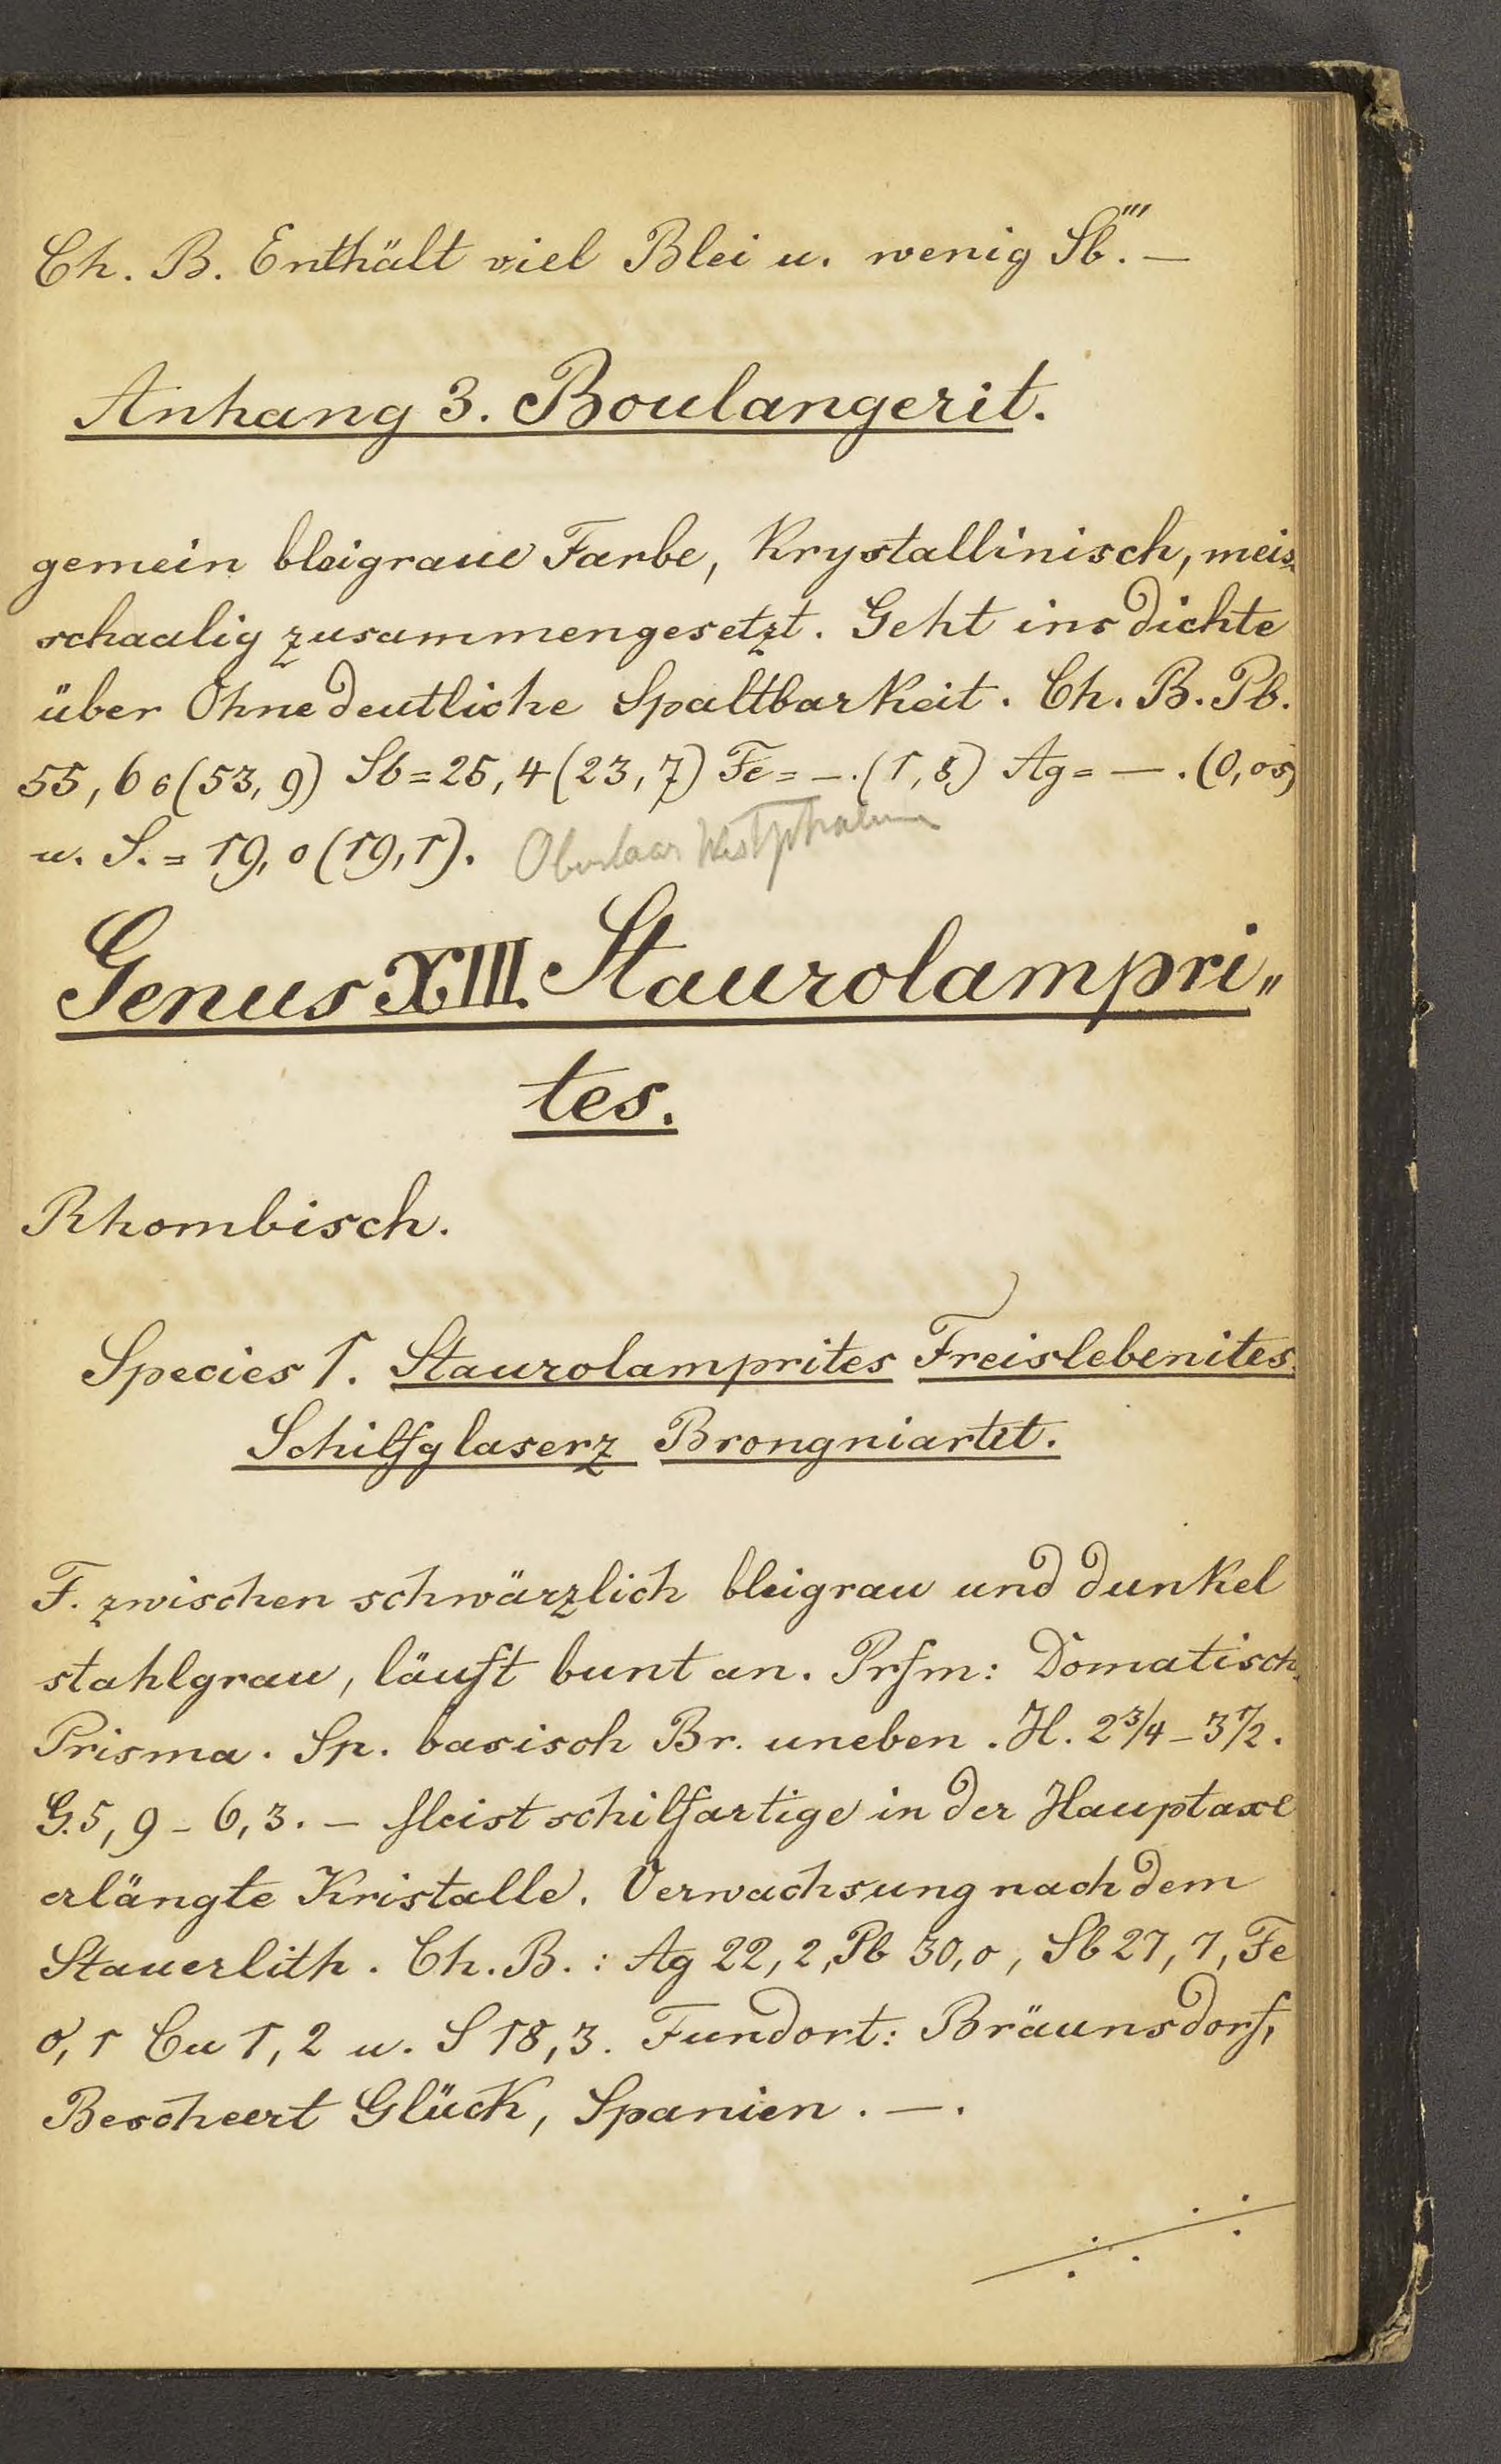 Ch. B. Enthält viel Blei u. wenig Sb.''' —
Anhang 3. Boulangerit.
gemein bleigraue Farbe, Krystallinisch, meis
schaalig zusammengesetzt. Geht ins dichte
über Ohne deutliche Spaltbarkeit. Ch. B. Pb.
55,6 (53,9) Sb = 25,4 (23,7) Fe = —. (1,8) Ag = —. (0,05)
u. S. = 19,0 (19,1). Westphalen
Genus XIII. Staurolampri„
tes.
Rhombisch.
Species 1. Staurolamprites Freislebenites.
Schilfglaserz Brongniartit.
F. zwischen schwärzlich bleigrau und dunkel
stahlgrau, läuft bunt an. Prfm: Domatisch.
Prisma. Sp. basisch Br. uneben. H. 2 3/4 – 3 1/2.
G. 5,9 – 6,3. – Meist schilfartige in der Hauptaxe
erlängte Kristalle. Verwachsung nach dem
Stauerlith. Ch. B.: Ag 22,2, Pb 30,0, Sb 27,7, Fe
0,1 Cu 1,2 u. S 18,3. Fundort: Bräunsdorf,
Bescheert Glück, Spanien. —.